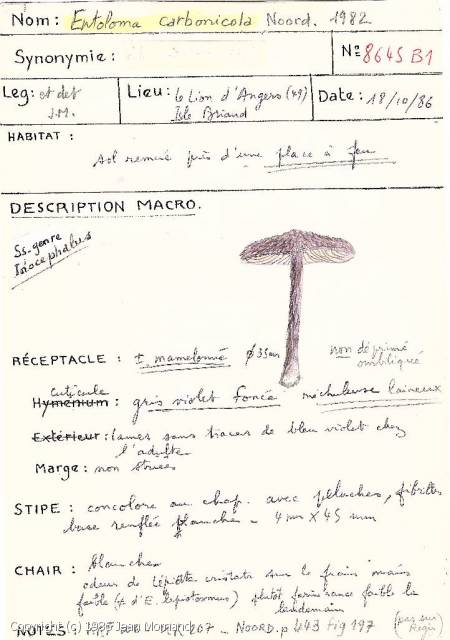 Nom: Entoloma carbonicola Noord. 1982
Synonymie:
N° 8645 B1
Leg: et det J.M.
Lieu: Le Lion d'Angers (49)
Isle Briand
Date: 18/10/86
HABITAT:
Sol remué près d'une place à feu
DESCRIPTION MACRO.
Ss-genre
Trichocephalus
RÉCEPTACLE : ± mamelonné ϕ 35mm non déprimé
ombiliqué
cuticule
Hyménium : gris violet foncé mechuleuse laineux
Extérieur : lames sans traces de bleu violet chez
l'adulte
Marge: non striée
STIPE : concolore au chap. avec peluches, fibrilles
base renflée blanche - 4 mm X 45 mm
CHAIR : blanche
odeur de Lépiote cristata sur le frais mais
faible (≠ d'E. lepiotosmus) plutôt farine rance faible le
lendemain
(pas sur
NOTES: 207 - NOORD. p 443 fig 197
Copyright (c) 1986 Jean Mornand